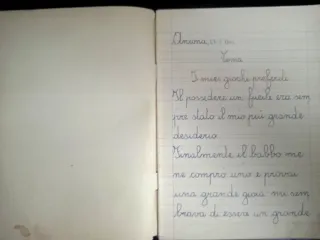 Ancona,
Tema
I miei giochi preferiti
Il possedere un fucile era sem
pre stato il mio più grande
desiderio.
Finalmente il babbo me
ne comprò uno e provai
una grande gioia mi sem
brava di essere un grande